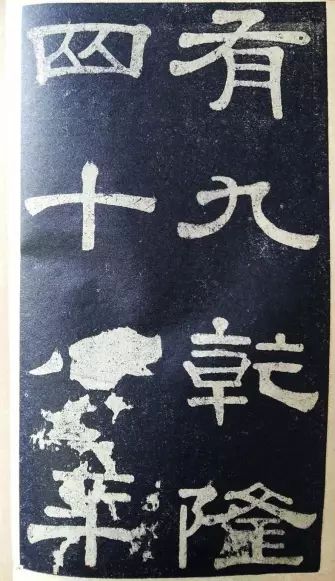 有九乾隆
四十